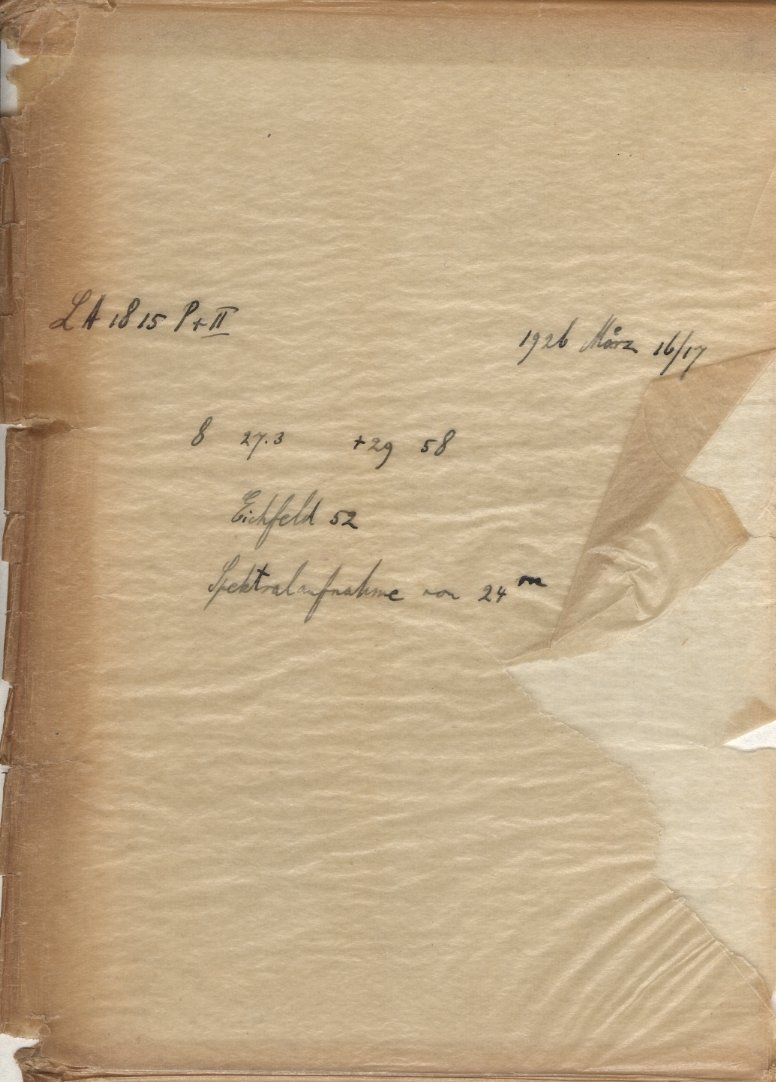 LA 1815 P+II
1926 März 16/17
8 27.3 +29 58
Eichfeld 52
Spektralaufnahme von 24 m